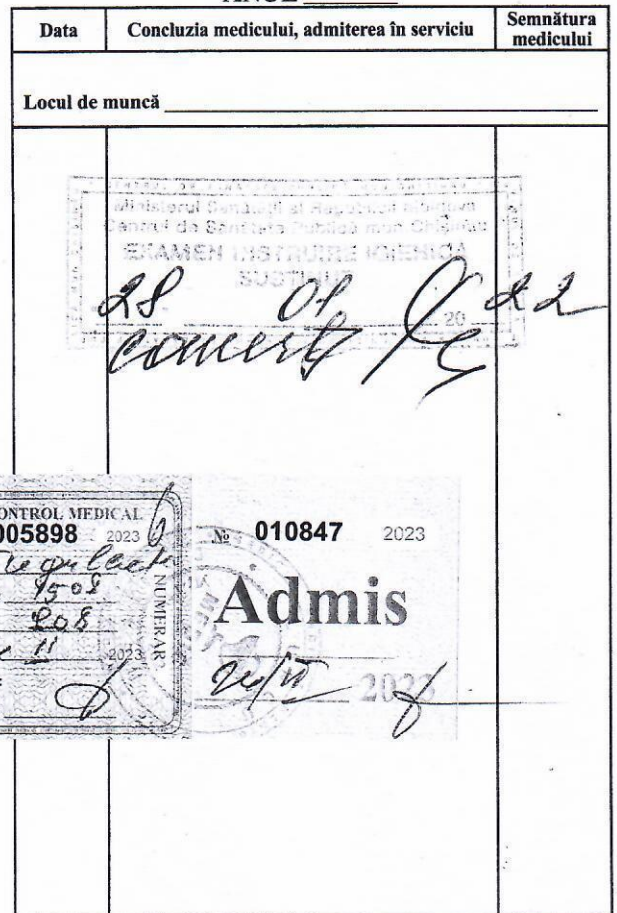 ANUL
Data
Concluzia medicului, admiterea în serviciu
Semnătura
medicului
Locul de muncă
Ministerul Sănătății al Republicii Moldova
Centrul de Sănătate Publică mun. Chișinău
EXAMEN INSTRUIRE IGIENICĂ
SUSȚINUT
28 01 20 22
comerț
CONTROL MEDICAL
005898 2023
NUMERAR
11 2023
№ 010847 2023
Admis
2023